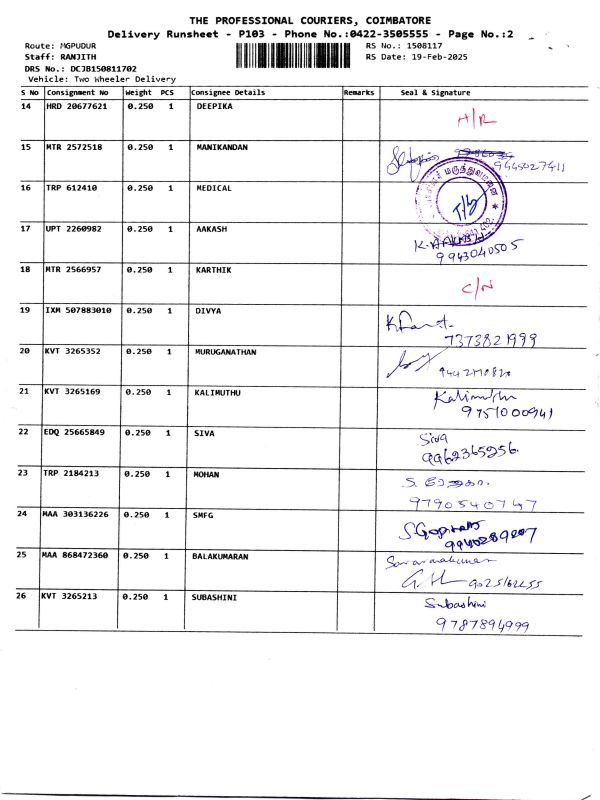 THE PROFESSIONAL COURIERS, COIMBATORE
Delivery Runsheet - P103 - Phone No.:0422-3505555 - Page No.:2
Route: MGPUDUR RS No.: 1508117
Staff: RANJITH RS Date: 19-Feb-2025
DRS No.: DCJB150811702
Vehicle: Two Wheeler Delivery
S No Consignment No Weight PCS Consignee Details Remarks Seal & Signature
14 HRD 20677621 0.250 1 DEEPIKA
15 MTR 2572518 0.250 1 MANIKANDAN
9445027411
16 TRP 612410 0.250 1 MEDICAL
17 UPT 2260982 0.250 1 AAKASH
K. AAKASH
9943040505
18 MTR 2566957 0.250 1 KARTHIK
C/N
19 IXM 507883010 0.250 1 DIVYA
7373821999
20 KVT 3265352 0.250 1 MURUGANATHAN
21 KVT 3265169 0.250 1 KALIMUTHU
Kalimuthu
9751000941
22 EDQ 25665849 0.250 1 SIVA
Siva
9962365256
23 TRP 2184213 0.250 1 MOHAN
9790540747
24 MAA 303136226 0.250 1 SMFG
25 MAA 868472360 0.250 1 BALAKUMARAN
26 KVT 3265213 0.250 1 SUBASHINI
Subashini
9787894999